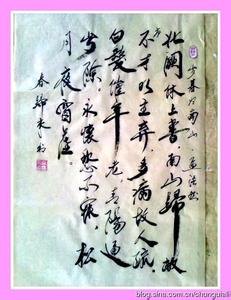 岁暮归南山·孟浩然
北阙休上書南山歸敝
庐不才明主弃多病故人疏
白髮催年老青陽逼
岁除永懷愁不寐松
月夜窗虚
blog.sina.com.cn/chunguilali